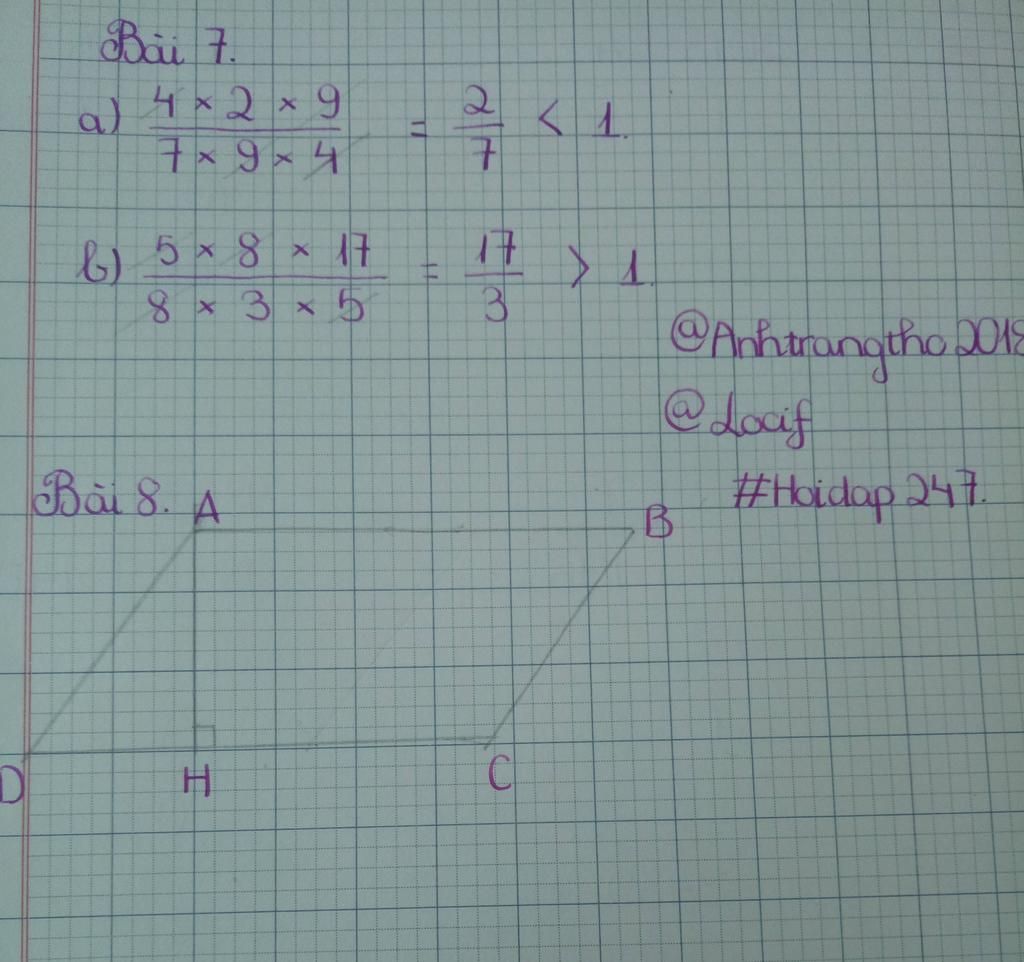 Bài 7.
a) \frac{4 × 2 × 9}{7 × 9 × 4} = \frac{2}{7} < 1.
b) \frac{5 × 8 × 17}{8 × 3 × 5} = \frac{17}{3} > 1.
@Anhtrangtho2018
@Locif
#Hoidap247.
Bài 8. A
B
D H C